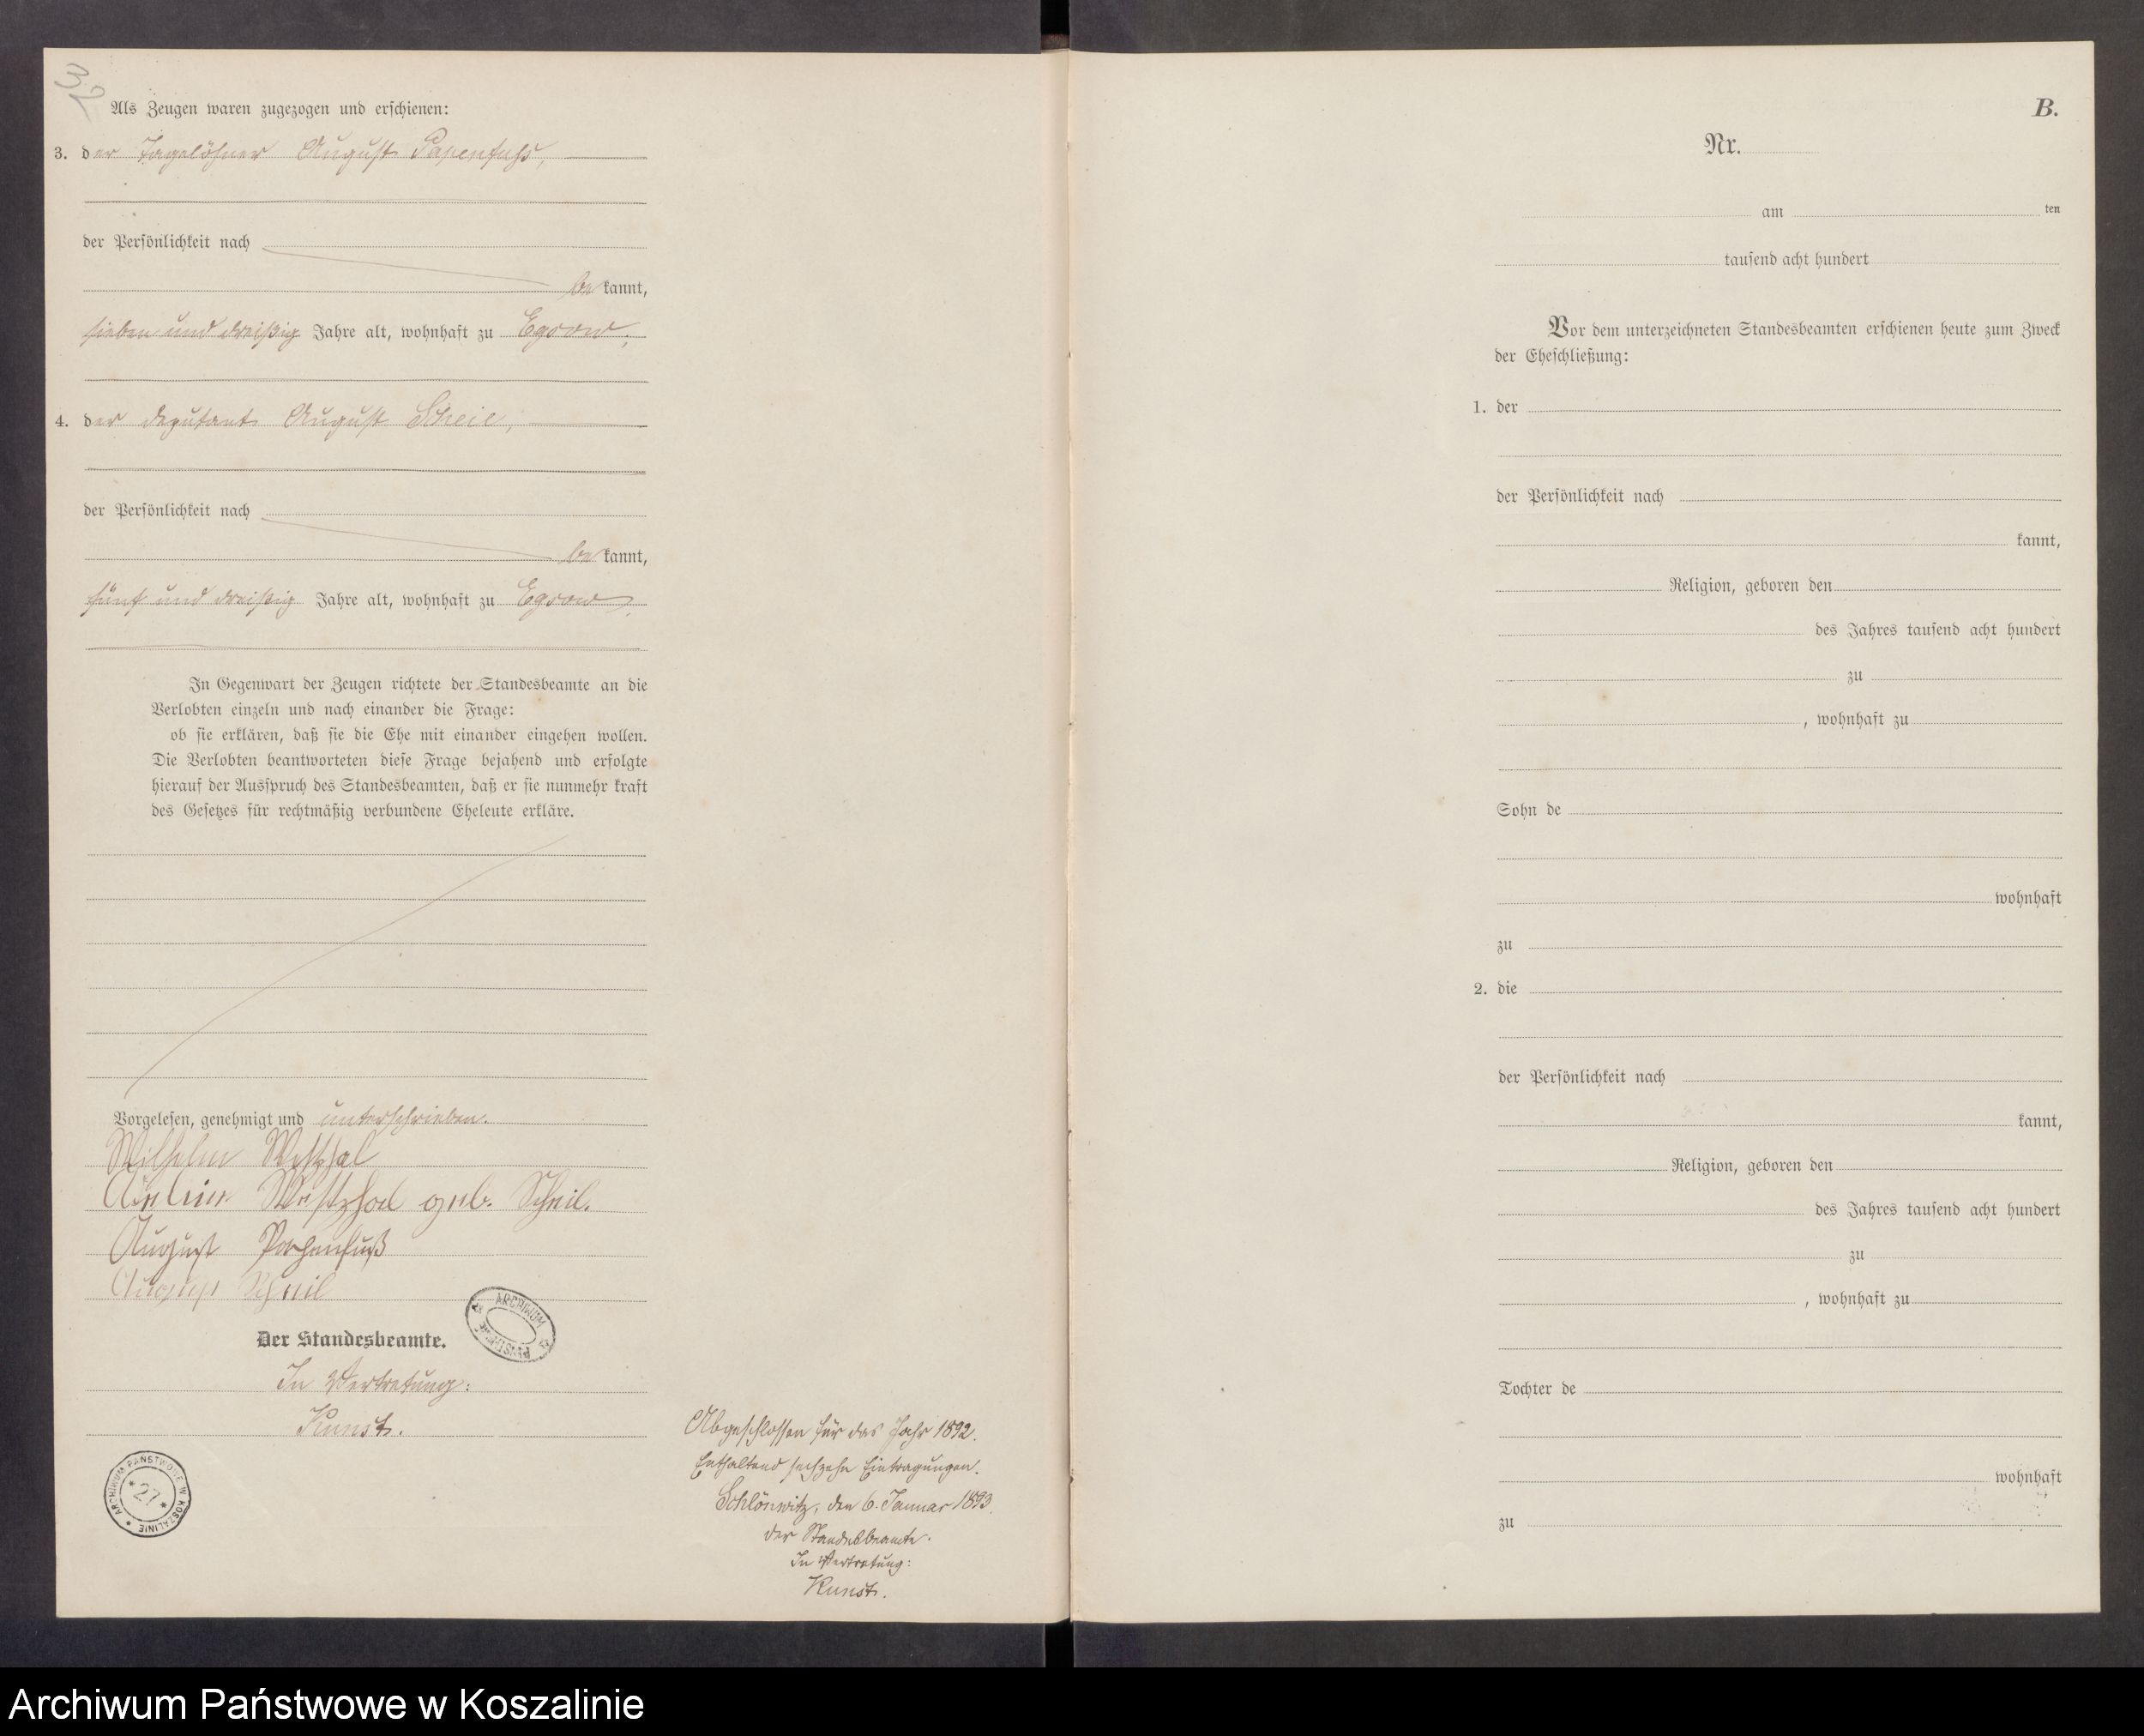 32
Als Zeugen waren zugezogen und erschienen:
3. der Tagelöhner August Papenfuhs,
der Persönlichkeit nach
be kannt,
sieben und dreißig Jahre alt, wohnhaft zu Egsow,
4. der Deputant August Scheil,
der Persönlichkeit nach
be kannt,
fünf und dreißig Jahre alt, wohnhaft zu Egsow,
In Gegenwart der Zeugen richtete der Standesbeamte an die
Verlobten einzeln und nach einander die Frage:
ob sie erklären, daß sie die Ehe mit einander eingehen wollen.
Die Verlobten beantworteten diese Frage bejahend und erfolgte
hierauf der Ausspruch des Standesbeamten, daß er sie nunmehr kraft
des Gesetzes für rechtmäßig verbundene Eheleute erkläre.
Vorgelesen, genehmigt und unterschrieben.
Wilhelm Westphal
Westphal geb. Scheil.
August Papenfuß
August Scheil
ARCHIWUM
Der Standesbeamte.
In Vertretung:
Kunst.
ARCHIWUM PAŃSTWOWE W KOSZALINIE
* 27 *
Abgeschlossen für das Jahr 1892.
Enthaltend sechzehn Eintragungen.
Schlönwitz, den 6. Januar 1893.
der Standesbeamte.
In Vertretung:
Kunst.
B.
Nr.
am ten
tausend acht hundert
Vor dem unterzeichneten Standesbeamten erschienen heute zum Zweck
der Eheschließung:
1. der
der Persönlichkeit nach
kannt,
Religion, geboren den
des Jahres tausend acht hundert
zu
, wohnhaft zu
Sohn de
wohnhaft
zu
2. die
der Persönlichkeit nach
kannt,
Religion, geboren den
des Jahres tausend acht hundert
zu
, wohnhaft zu
Tochter de
wohnhaft
zu
Archiwum Państwowe w Koszalinie